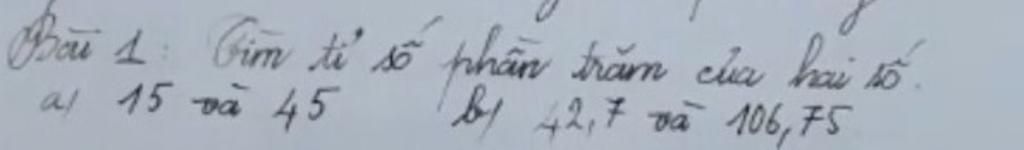 Bài 1: Tìm tỉ số phần trăm của hai số.
a) 15 và 45 b) 42,7 và 106,75